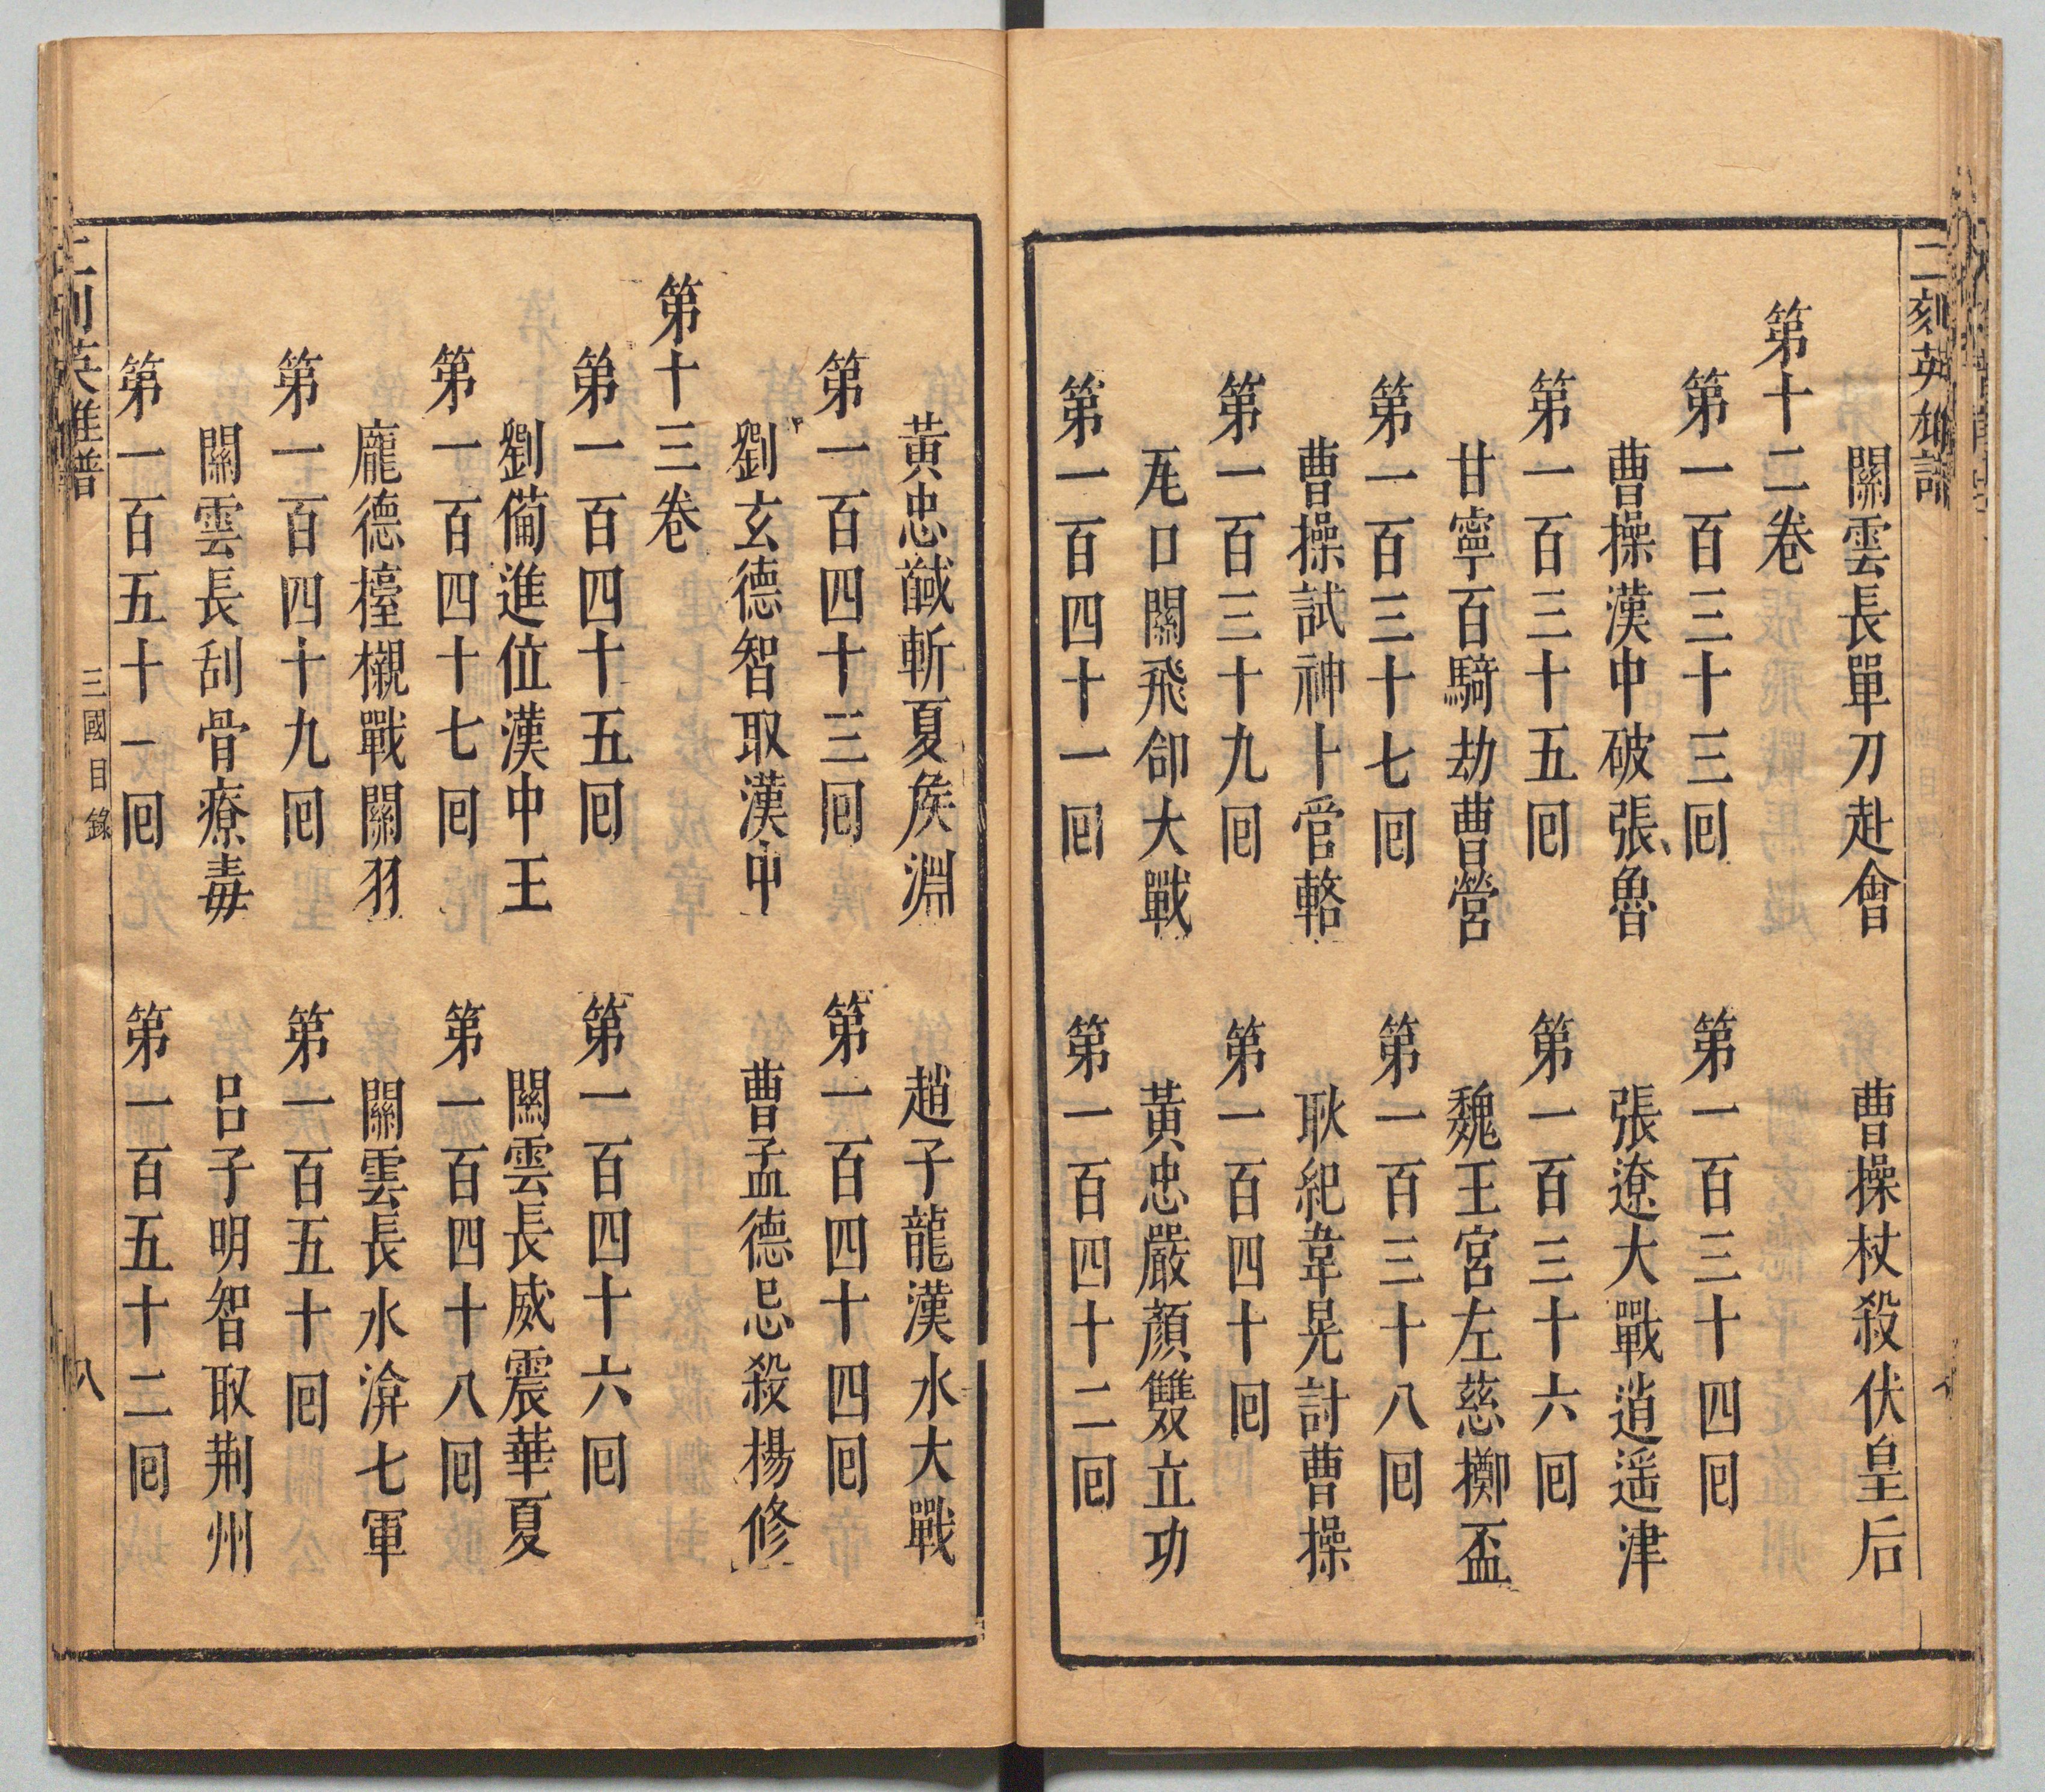 二刻英雄譜
關雲長單刀赴會　曹操杖殺伏皇后
第十二卷
第一百三十三囘　第一百三十四囘
曹操漢中破張魯　張遼大戰逍遥津
第一百三十五囘　第一百三十六囘
甘寧百騎劫曹營　魏王宮左慈擲盃
第一百三十七囘　第一百三十八囘
曹操試神卜管輅　耿紀韋晃討曹操
第一百三十九囘　第一百四十囘
瓦口關飛郃大戰　黃忠嚴顏雙立功
第一百四十一囘　第一百四十二囘
黃忠馘斬夏矦淵　趙子龍漢水大戰
第一百四十三囘　第一百四十四囘
劉玄德智取漢中　曹孟德忌殺楊修
第十三卷
第一百四十五囘　第一百四十六囘
劉備進位漢中王　關雲長威震華夏
第一百四十七囘　第一百四十八囘
龐德擡櫬戰關羽　關雲長水渰七軍
第一百四十九囘　第一百五十囘
關雲長刮骨療毒　呂子明智取荆州
第一百五十一囘　第一百五十二囘
二刻英雄譜　三國目錄　八